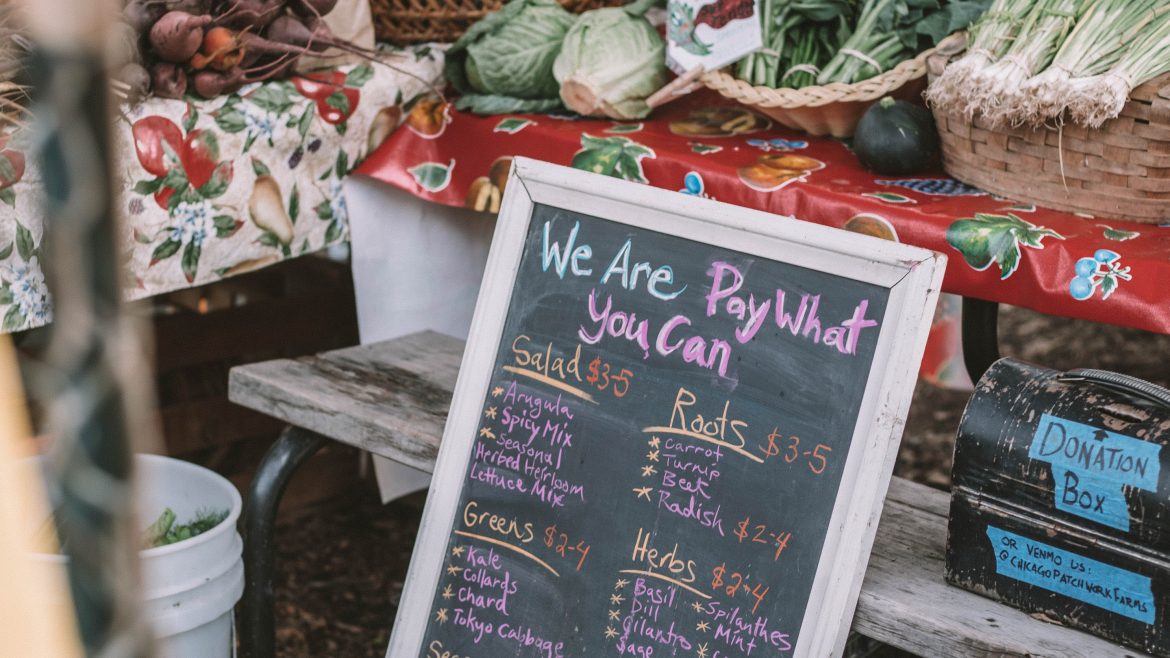 We Are Pay What
You Can
Salad $3-5
* Arugula
* Spicy Mix
* Seasonal
Herbed Heirloom
Lettuce Mix
Greens $2-4
* Kale
* Collards
* Chard
* Tokyo Cabbage
Roots $3-5
* Carrot
* Turnip
* Beet
* Radish $2-4
Herbs $2-4
* Basil
* Dill
* Cilantro
* Sage
* Spilanthes
* Mint
Donation
Box
OR VENMO US:
@CHICAGOPATCHWORKFARMS